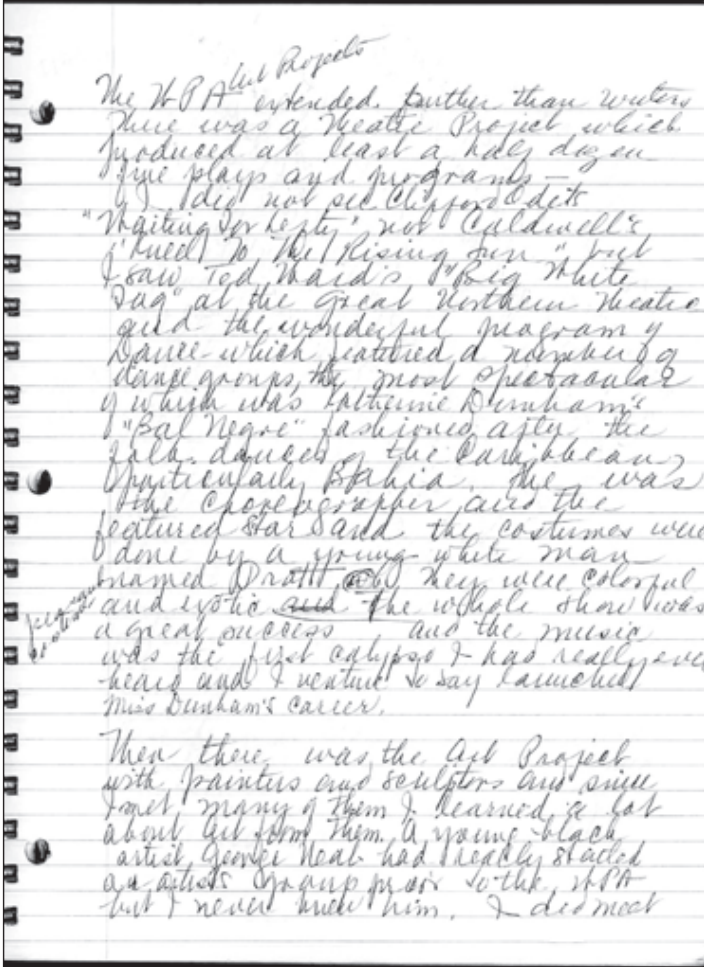 Art Projects
The WPA extended further than writers
There was a Theatre Project which
produced at least a half dozen
fine plays and programs —
I did not see Clifford Odets
"Waiting for Lefty" nor Caldwell's
"Kneel To The Rising Sun" but
I saw Ted Ward's "Big White
Fog" at the Great Northern Theatre
and the wonderful program of
Dance which featured a number of
dance groups, the most spectacular
of which was Katherine Dunham's
"Bal Negre" fashioned after the
folk dances of the Caribbean,
particularly Bahia. She was
the choreographer and the
featured star and the costumes were
done by a young white man
named Pratt. They were colorful
and exotic and The whole show was
a great success and the music
was the first calypso I had really ever
heard and I venture to say launched
Miss Dunham's career.
Then there was the Art Project
with painters and sculptors and since
I met many of them I learned a lot
about art from them. A young black
artist, George Neal had really started
an artists group prior to the WPA
but I never knew him. I did meet